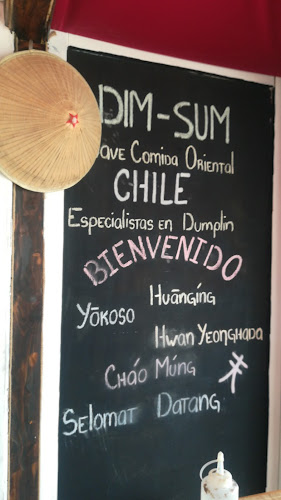 DIM-SUM
ave Comida Oriental
CHILE
Especialistas en Dumplin
BIENVENIDO
Huāngíng
Yōkoso
Hwan Yeonghada
Cháo Múng
Selomat Datang